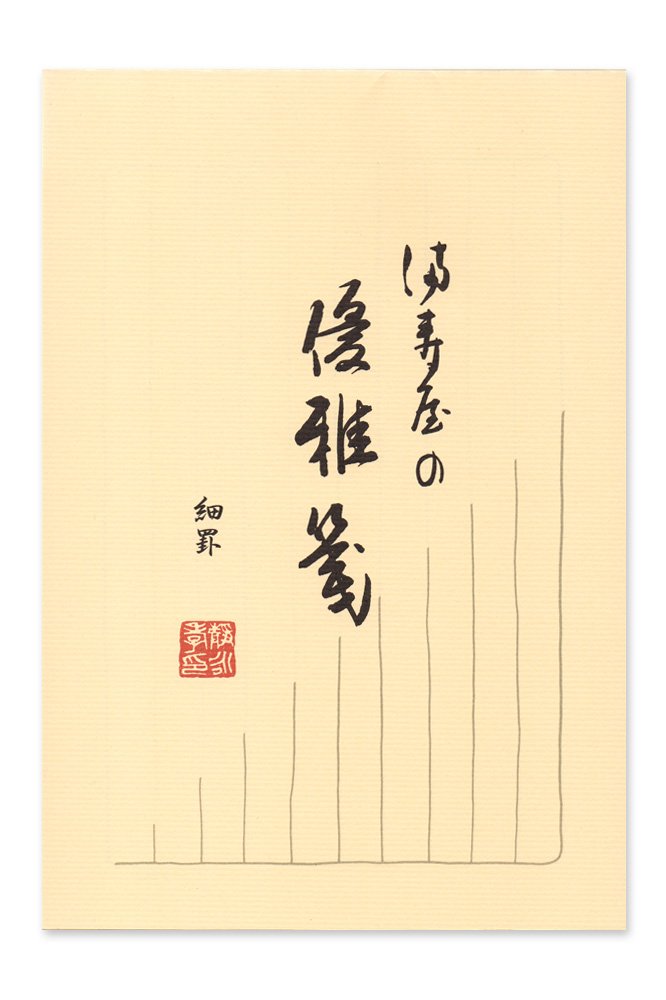 満寿屋の
優雅箋
細罫